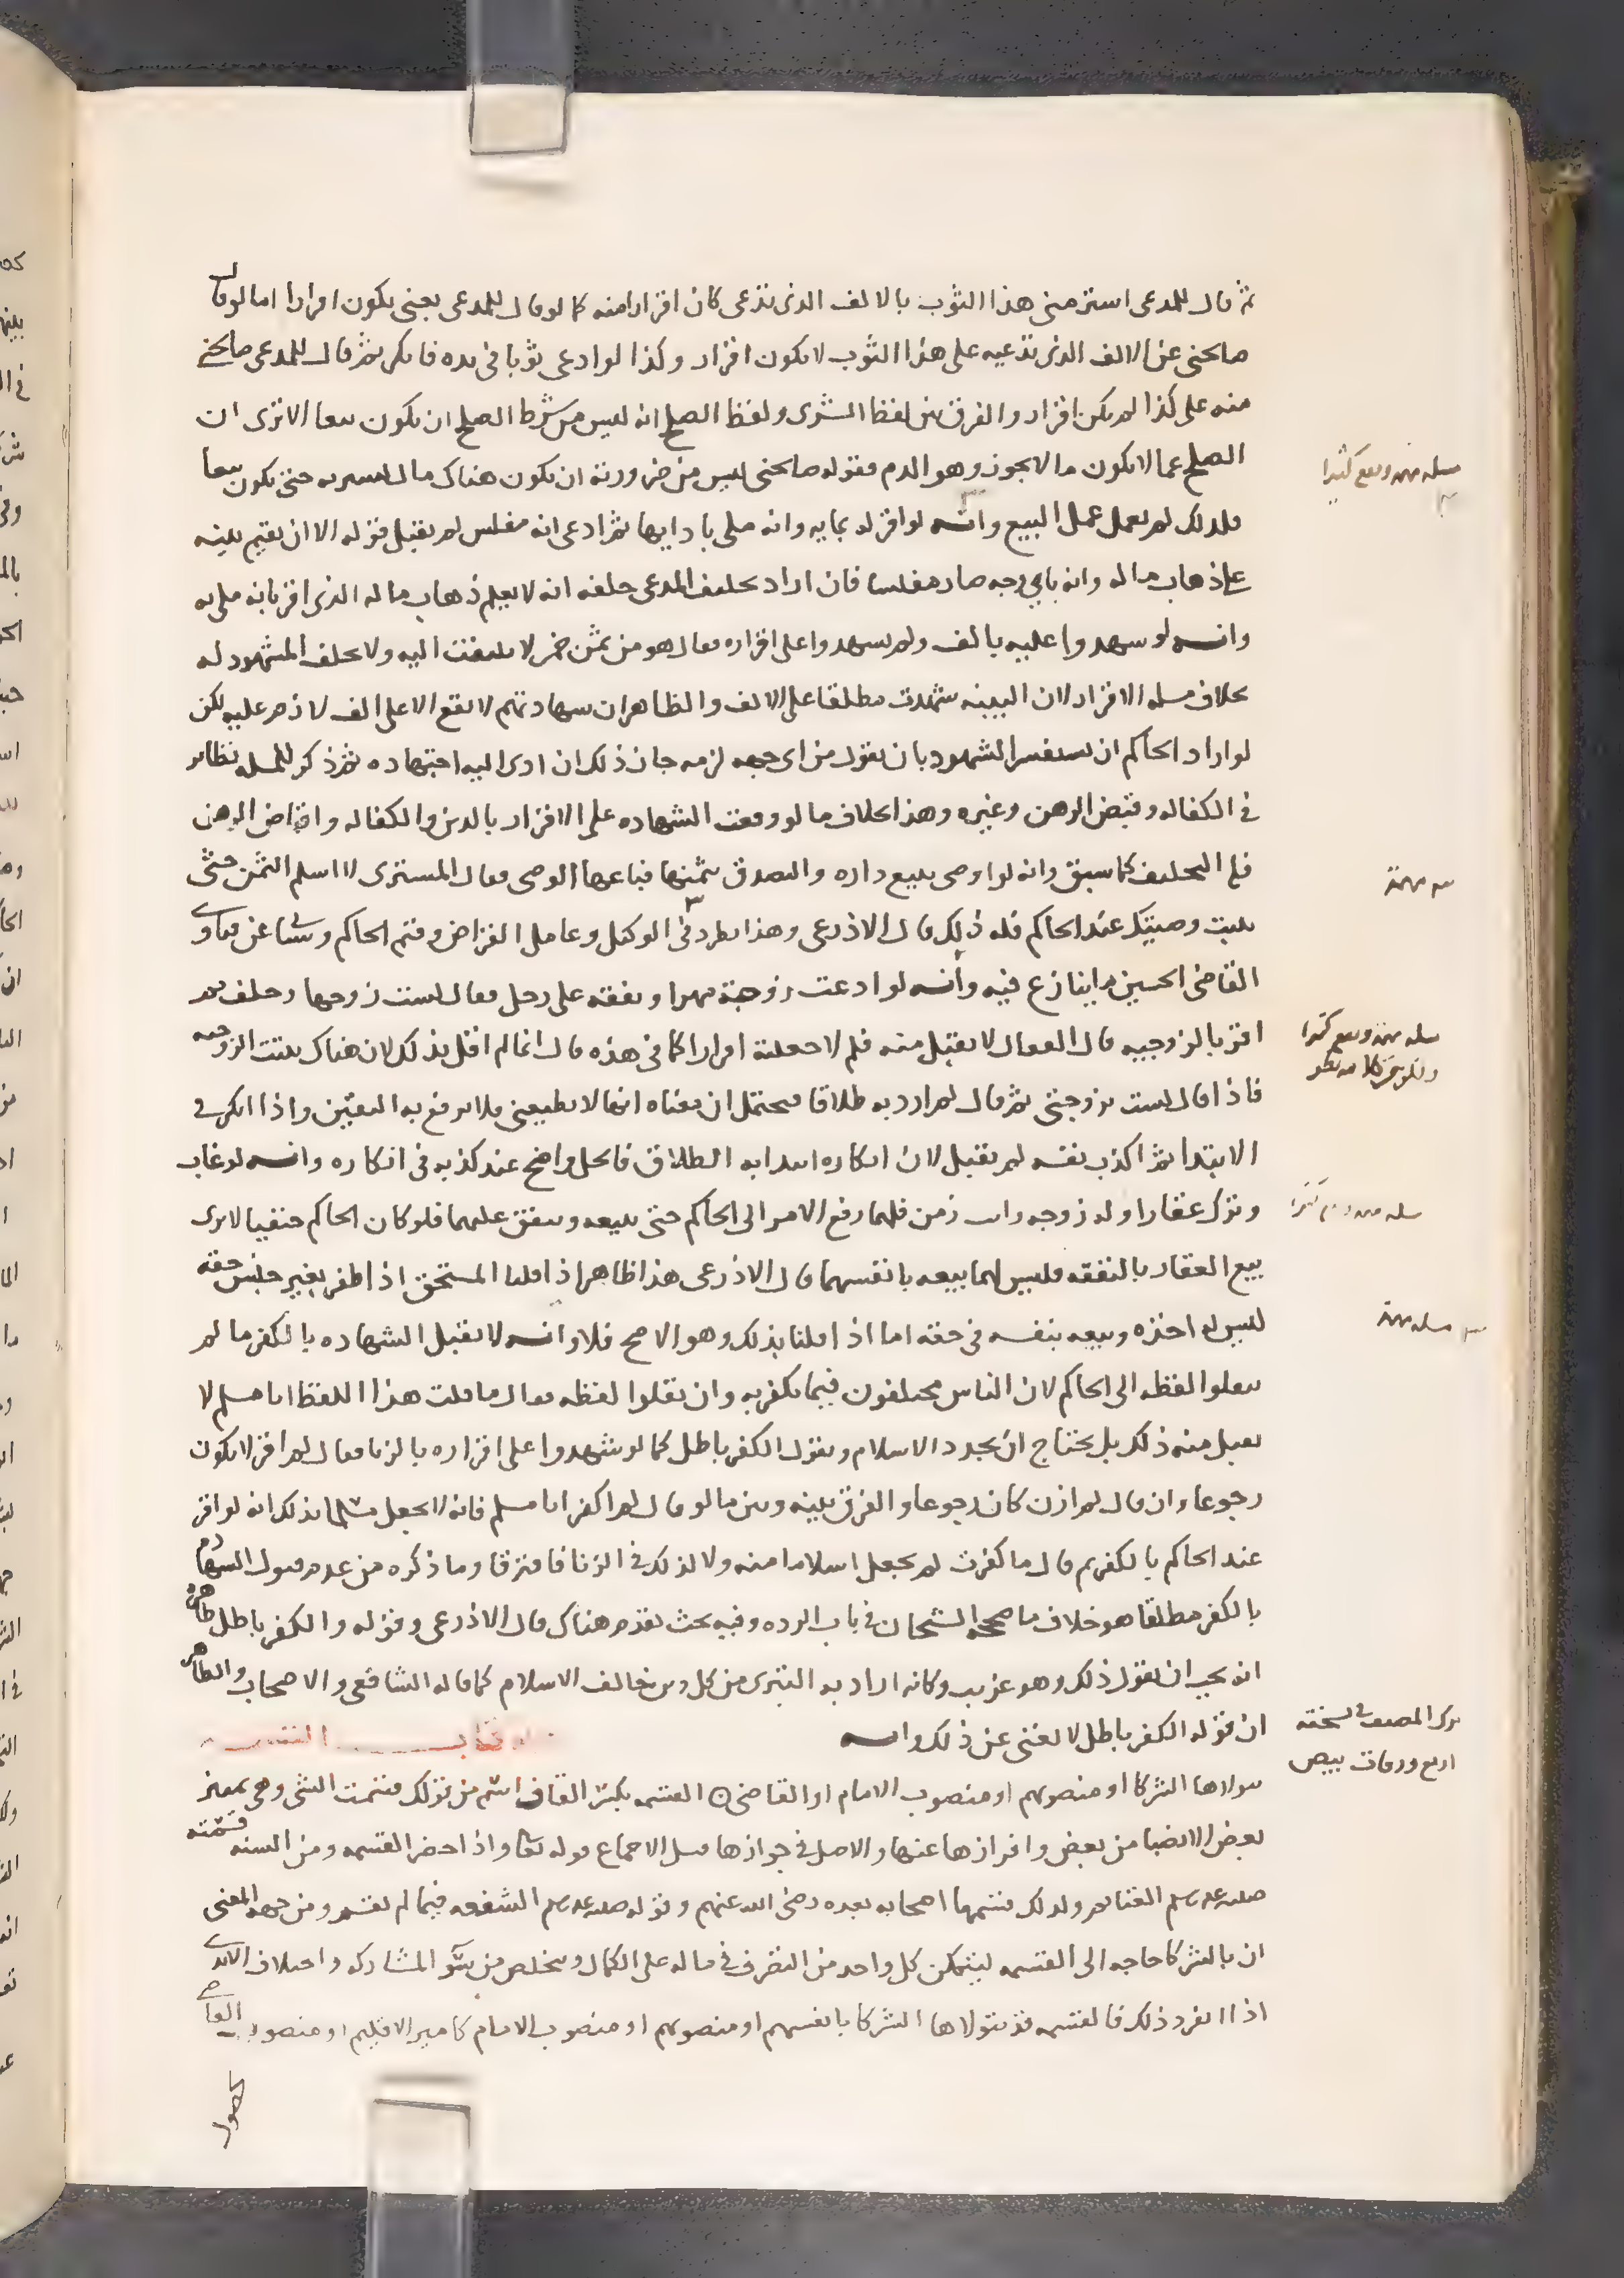 ثم قال للمدعي اشتر مني هذا الثوب بالالف الذي تدعي كان اقرارا منه كما لو قال للمدعي بعني يكون اقرارا اما لو قال
صالحني عن الالف الذي تدعيه على هذا الثوب لا يكون اقرار وكذا لو ادعى ثوبا في يده فانكر ثم قال للمدعي صالحني
منه على كذا لم يكن اقرار والفرق بين لفظ الشرى ولفظ الصلح انه ليس من شرط الصلح ان يكون بيعا الا ترى ان
الصلح عما لا يكون مالا يجوز وهو الدم فقوله صالحني ليس من ضرورته ان يكون هناك مال حتى يكون بيعا
فلذلك لم يعمل عمل البيع وانه لو اقر له بمايه وانه ملي بادايها ثم ادعى انه مفلس لم يقبل قوله الا ان يقيم بينه
على ذهاب ماله وانه باي وجه صار مفلسا فان اراد تحليف المدعي حلفه انه لا يعلم ذهاب ماله الذي اقر بانه ملي به
وانه لو شهدوا عليه بالف ولم يشهدوا على اقراره فقال هو من ثمن خمر لا يلتفت اليه ولا يحلف المشهود له
بخلاف مسله الاقرار لان البينه شهدت مطلقا على الالف والظاهر ان شهادتهم لا تقع الا على الف لازم عليه لكن
لو اراد الحاكم ان يستفسر الشهود بان يقول من اي جهه لزمه جاز ذلك ان ادى اليه اجتهاده ثم ذكر للمسله نظاير
في الكفاله وقبض الرهن وغيره وهذا بخلاف ما لو وقعت الشهاده على الاقرار بالدين والكفاله واقباض الرهن
فله التحليف كما سبق وانه لو اوصى ببيع داره والتصدق بثمنها فباعها الوصي فقال المشتري لا اسلم الثمن حتى
يثبت وصيتك عند الحاكم فله ذلك قال الاذرعي وهذا يطرد في الوكيل وعامل القراض وقيم الحاكم وسبق عن فتاوي
القاضي الحسين ما ينازع فيه وانه لو ادعت زوجية مهرا ونفقه على رجل فقال لست زوجها وحلف ثم
اقر بالزوجيه قال القفال لا يقبل منه فلم لا جعلته اقرارا كما في هذه قال انما لم اقل بذلك لان هناك يثبت الزوجيه
فاذا قال لست بزوجتي ثم قال لم ارد به طلاقا فيحتمل ان معناه انها لا تطيعني فلا يرفع به اليقين واذا انكر في
الابتدا ثم اكذب نفسه لم يقبل لان انكاره ابتدا به الطلاق فالحل واضح عند كذبه في انكاره وانه لو غاب
وترك عقارا وله زوجه واب زمن فلهما رفع الامر الى الحاكم حتى يبيعه وينفق عليهما فلو كان الحاكم حنفيا لا يرى
بيع العقار بالنفقه فليس لهما بيعه بانفسهما قال الاذرعي هذا ظاهر اذا قلنا المستحق اذا ظفر بغير جنس حقه
ليس له اخذه وبيعه بنفسه في حقه اما اذا قلنا بذلك وهو الاصح فلا وانه لا تقبل الشهاده بالكفر ما لم
ينقلوا لفظه الى الحاكم لان الناس مختلفون فيما يكفر به وان نقلوا لفظه فقال ما قلت هذا اللفظ انا مسلم لا
يقبل منه ذلك بل يحتاج ان يجدد الاسلام ويقول الكفر باطل كما لو شهدوا على اقراره بالزنا فقال لم اقر لا يكون
رجوعا وان قال لم ازن كان رجوعا والفرق بينه وبين ما لو قال لم اكفر انا مسلم فانه لا يجعل مسلما بذلك انه لو اقر
عند الحاكم بالكفر ثم قال ما كفرت لم يجعل اسلاما منه ولا كذلك في الزنا فافترقا وما ذكره من عدم قبول الشهاده
بالكفر مطلقا هو خلاف ما صححه الشيخان في باب الرده وفيه بحث تقدم هناك قال الاذرعي وقوله والكفر باطل ظاهره
انه يجب ان يقول ذلك وهو غريب وكانه اراد به التبري من كل دين خالف الاسلام كما قاله الشافعي والاصحاب والظاهر
ان قوله الكفر باطل لا يغني عن ذلك والله
القسمه
يتولاها الشركا او منصوبهم او منصوب الامام او القاضي القسمه بكسر القاف اسم من قولك قسمت الشي وهي تمييز
بعض الانصبا من بعض وافرازها عنها والاصل في جوازها قبل الاجماع قوله تعالى واذا حضر القسمه ومن السنه قسمته
صلى الله عليه وسلم الغنايم ولذلك قسمها اصحابه بعده رضي الله عنهم وقوله صلى الله عليه وسلم الشفعه فيما لم يقسم ومن جهه المعنى
ان بالشركا حاجه الى القسمه ليتمكن كل واحد من التصرف في ماله على الكمال ويتخلص من سو المشاركه واختلاف الايدي
اذا تقرر ذلك فالقسمه قد يتولاها الشركا بانفسهم او منصوبهم او منصوب الامام كامير الاقليم او منصوب القاضي
مسله مهمه وتقع كثيرا
مهمه
مسله مهمه وتقع كثيرا
مسله مهمه
ترك المصنف في نسخته
اربع ورقات بيض